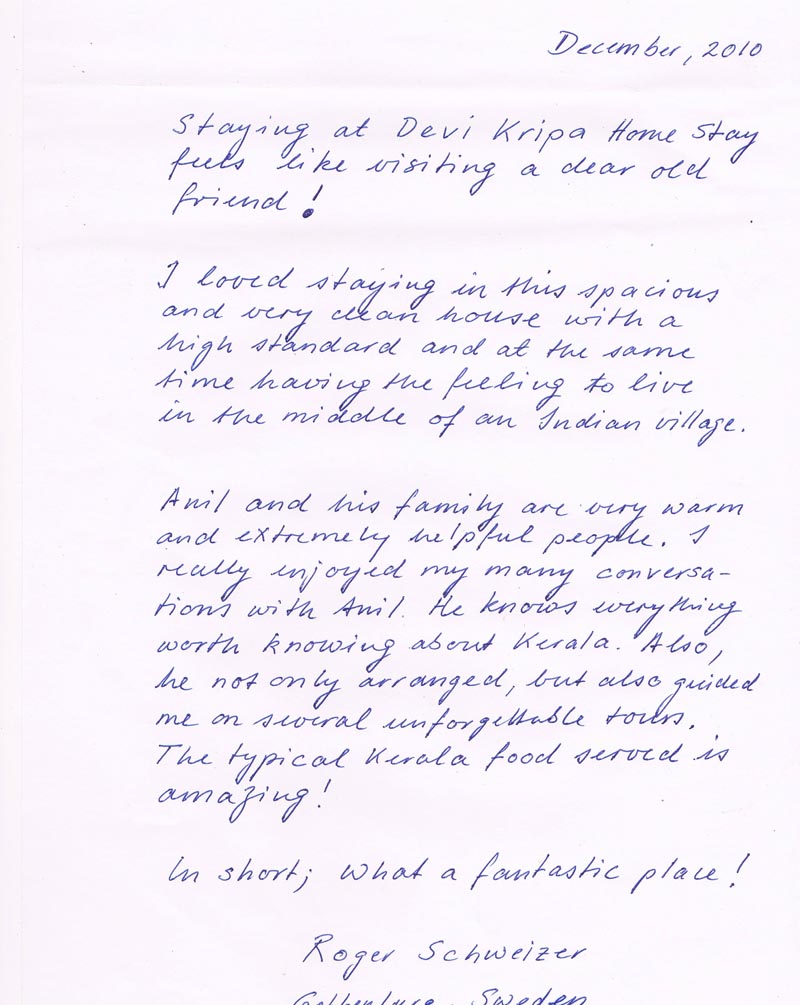 December, 2010
Staying at Devi Kripa Home Stay
feels like visiting a dear old
friend!
I loved staying in this spacious
and very clean house with a
high standard and at the same
time having the feeling to live
in the middle of an Indian village.
Anil and his family are very warm
and extremely helpful people. I
really enjoyed my many conversa-
tions with Anil. He knows everything
worth knowing about Kerala. Also,
he not only arranged, but also guided
me on several unforgettable tours.
The typical Kerala food served is
amazing!
In short; what a fantastic place!
Roger Schweizer
Gothenburg, Sweden